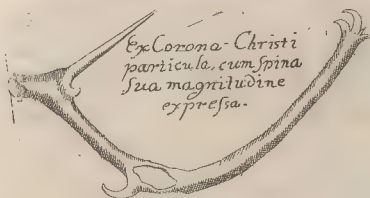 Ex Corona Christi
particula, cum spina
sua magnitudine
expressa.